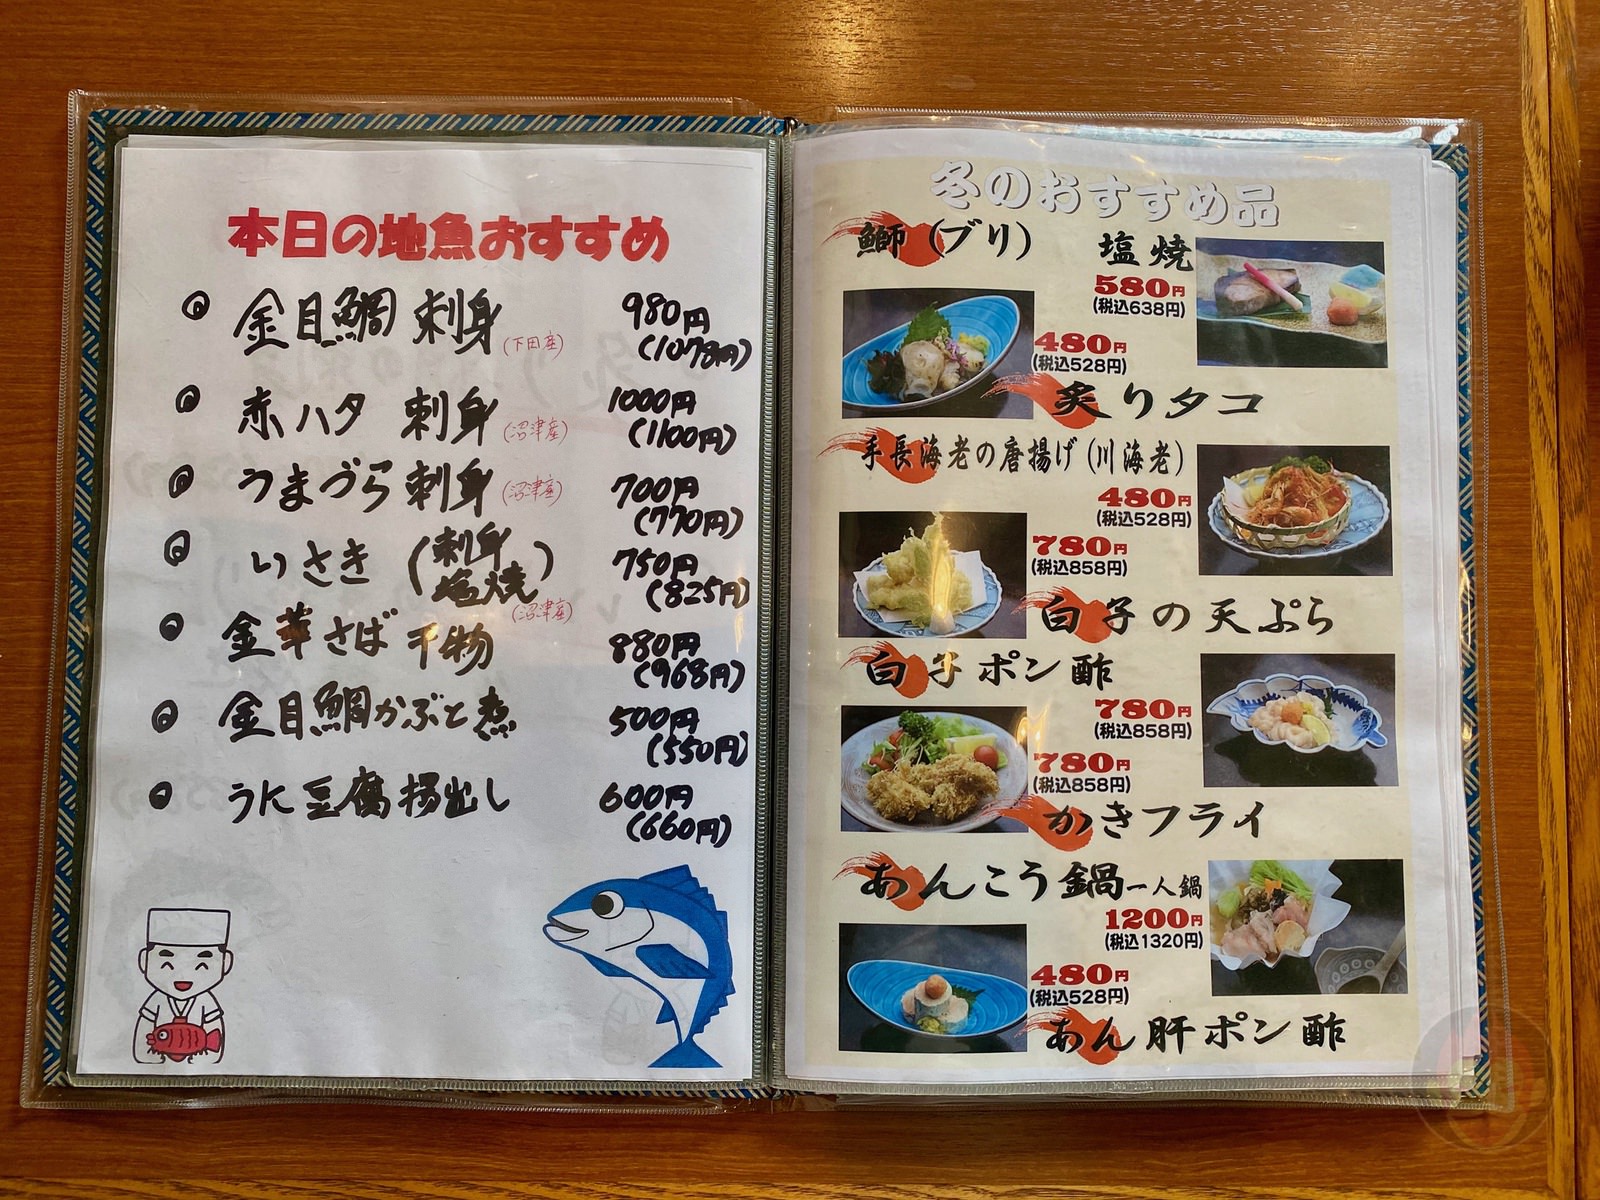 本日の地魚おすすめ
金目鯛 刺身 (下田産) 980円
(1078円)
赤ハタ 刺身 (沼津産) 1000円
(1100円)
うまづら 刺身 (沼津産) 700円
(770円)
いさき (刺身 塩焼) (沼津産) 750円
(825円)
金華さば 干物 880円
(968円)
金目鯛かぶと煮 500円
(550円)
うに豆腐揚出し 600円
(660円)
冬のおすすめ品
鰤(ブリ) 塩焼
580円
(税込638円)
480円
(税込528円)
炙りタコ
手長海老の唐揚げ(川海老)
480円
(税込528円)
780円
(税込858円)
白子の天ぷら
白子ポン酢
780円
(税込858円)
780円
(税込858円)
かきフライ
あんこう鍋 一人鍋
1200円
(税込1320円)
480円
(税込528円)
あん肝ポン酢